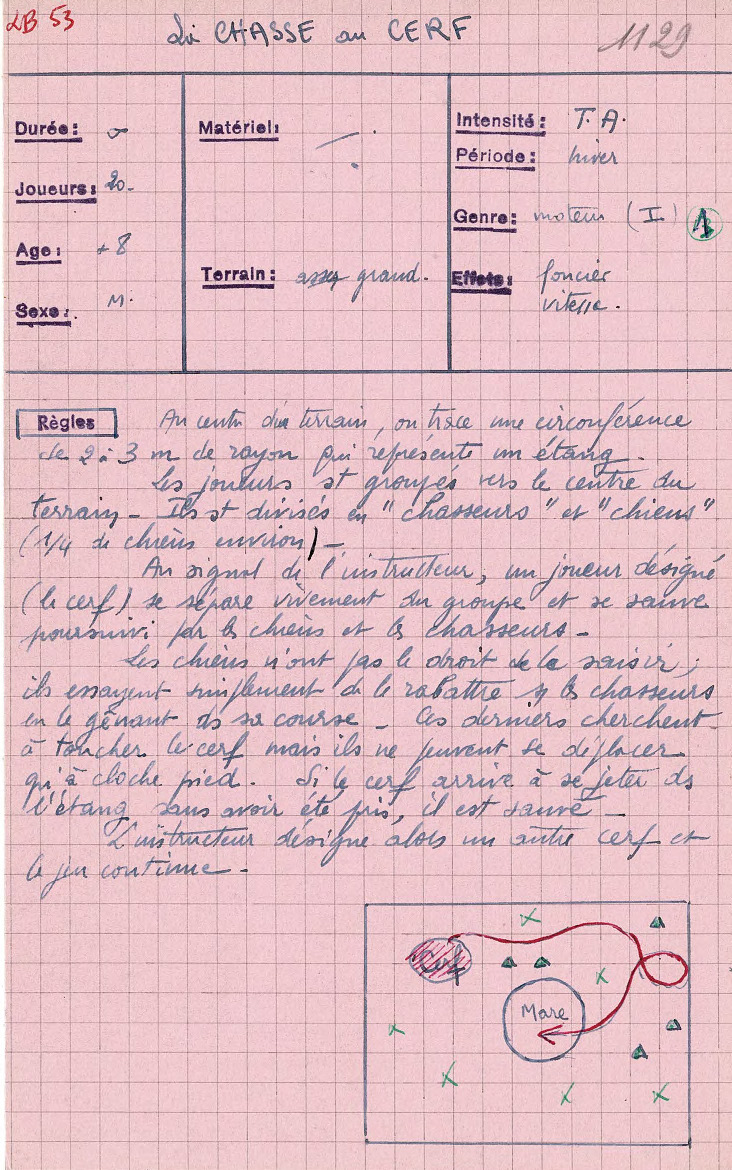 LB 53
La CHASSE au CERF
1129
Durée: ∞
Joueurs: 20-
Age: + 8
Sexe: M.
Matériel:
Terrain: assez grand.
Intensité: T. A.
Période: hiver
Genre: moteur (I)
Effets: foncier
vitesse.
Règles Au centre du terrain, on trace une circonférence
de 2 à 3 m de rayon qui représente un étang.
Les joueurs st groupés vers le centre du
terrain - Ils st divisés en "chasseurs" et "chiens"
(1/4 de chiens environ) -
Au signal de l'instructeur, un joueur désigné
(le cerf) se sépare vivement du groupe et se sauve
poursuivi par ls chiens et ls chasseurs -
Les chiens n'ont pas le droit de le saisir;
ils essayent simplement de le rabattre ls chasseurs
en le gênant ds sa course - Ces derniers cherchent
à toucher le cerf mais ils ne peuvent se déplacer
qu'à cloche pied. Si le cerf arrive à se jeter ds
l'étang sans avoir été pris, il est sauvé -
L'instructeur désigne alors un autre cerf et
le jeu continue -
Cerf
Mare